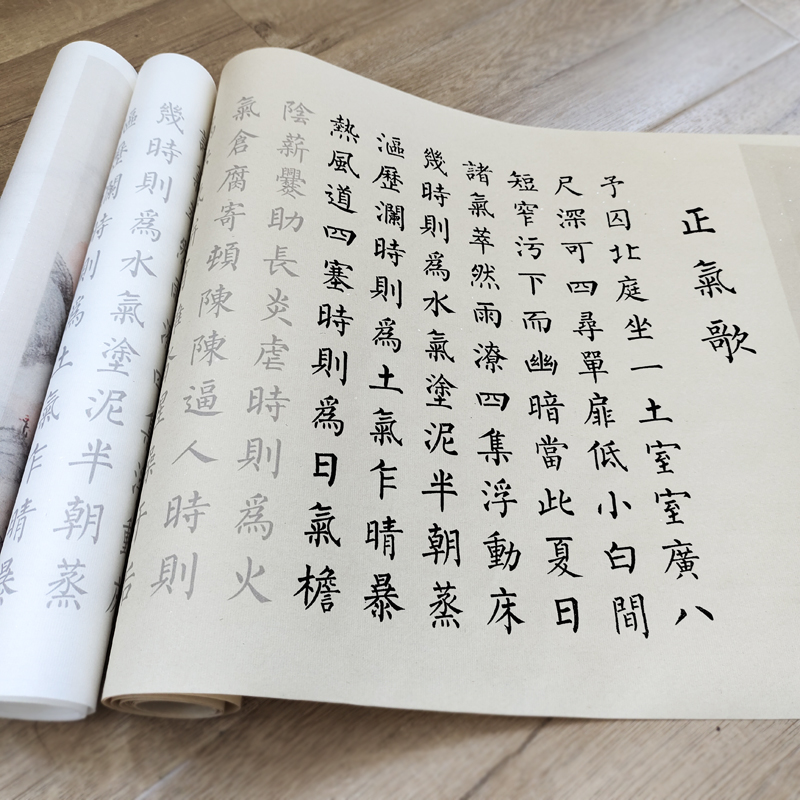 正氣歌
予囚北庭坐一土室室廣八
尺深可四尋單扉低小白間
短窄污下而幽暗當此夏日
諸氣萃然雨潦四集浮動床
幾時則爲水氣塗泥半朝蒸
漚歷瀾時則爲土氣乍晴暴
熱風道四塞時則爲日氣檐
陰薪爨助長炎虐時則爲火
氣倉腐寄頓陳陳逼人時則
幾時則爲水氣塗泥半朝蒸
瀾時則爲土氣乍晴暴